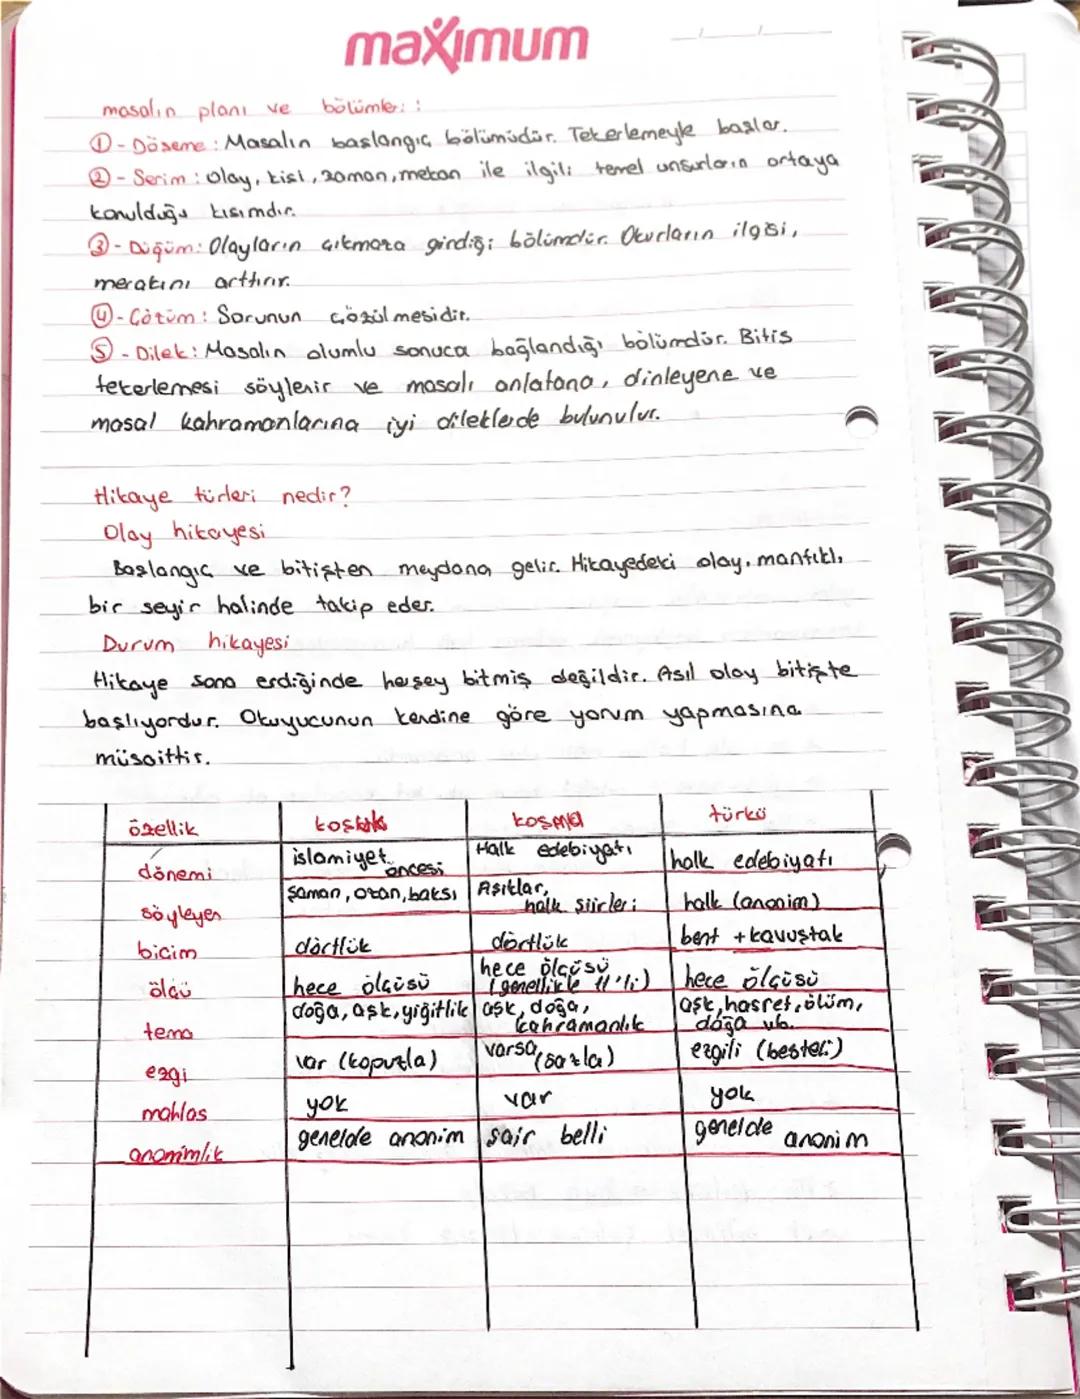 maximum
masalın planı ve bölümleri :
① - Döşeme : Masalın başlangıç bölümüdür. Tekerlemeyle başlar.
② - Serim : Olay, kişi, zaman, mekan ile ilgili temel unsurların ortaya
konulduğu kısımdır.
③ - Düğüm : Olayların çıkmaza girdiği bölümdür. Okurların ilgisi,
merakını arttırır.
④ - Çözüm : Sorunun çözülmesidir.
⑤ - Dilek : Masalın olumlu sonuca bağlandığı bölümdür. Bitiş
tekerlemesi söylenir ve masalı anlatana, dinleyene ve
masal kahramanlarına iyi dileklerde bulunulur.
Hikaye türleri nedir?
Olay hikayesi
Başlangıç ve bitişten meydana gelir. Hikayedeki olay, mantıklı
bir seyir halinde takip eder.
Durum hikayesi
Hikaye sona erdiğinde herşey bitmiş değildir. Asıl olay bitişte
başlıyordur. Okuyucunun kendine göre yorum yapmasına
müsaittir.
özellik koşuk koşma türkü
dönemi islamiyet öncesi Halk edebiyatı halk edebiyatı
söyleyen şaman, ozan, baksı Aşıklar, halk şiirleri halk (anonim)
biçim dörtlük dörtlük bent + kavuştak
ölçü hece ölçüsü hece ölçüsü (genellikle 11'li) hece ölçüsü
tema doğa, aşk, yiğitlik aşk, doğa, kahramanlık aşk, hasret, ölüm, doğa vb.
ezgi var (kopuzla) varsa (sazla) ezgili (besteli)
mahlas yok var yok
anonimlik genelde anonim şair belli genelde anonim